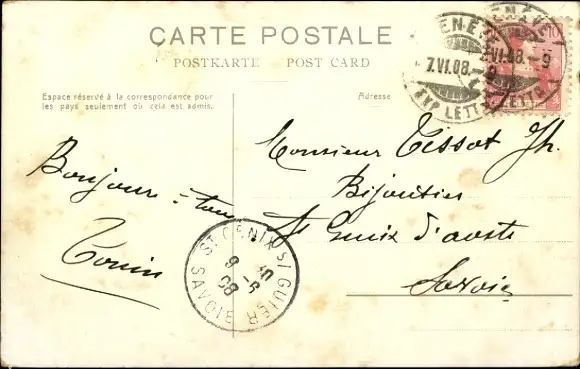 CARTE POSTALE
POSTKARTE POST CARD
Espace réservé à la correspondance pour
les pays seulement où cela est admis.
Adresse
Bonjour à tous
Tonin
Monsieur Tissot Jh.
Bijoutier
St Genix d'aoste
Savoie
GENÈVE
7.VI.08.-9
EXP. LETTR.
GENÈVE
7.VI.08.-9
EXP. LETTR.
10
ST GENIX S/ GUIER
8 30
9 -6
08
SAVOIE